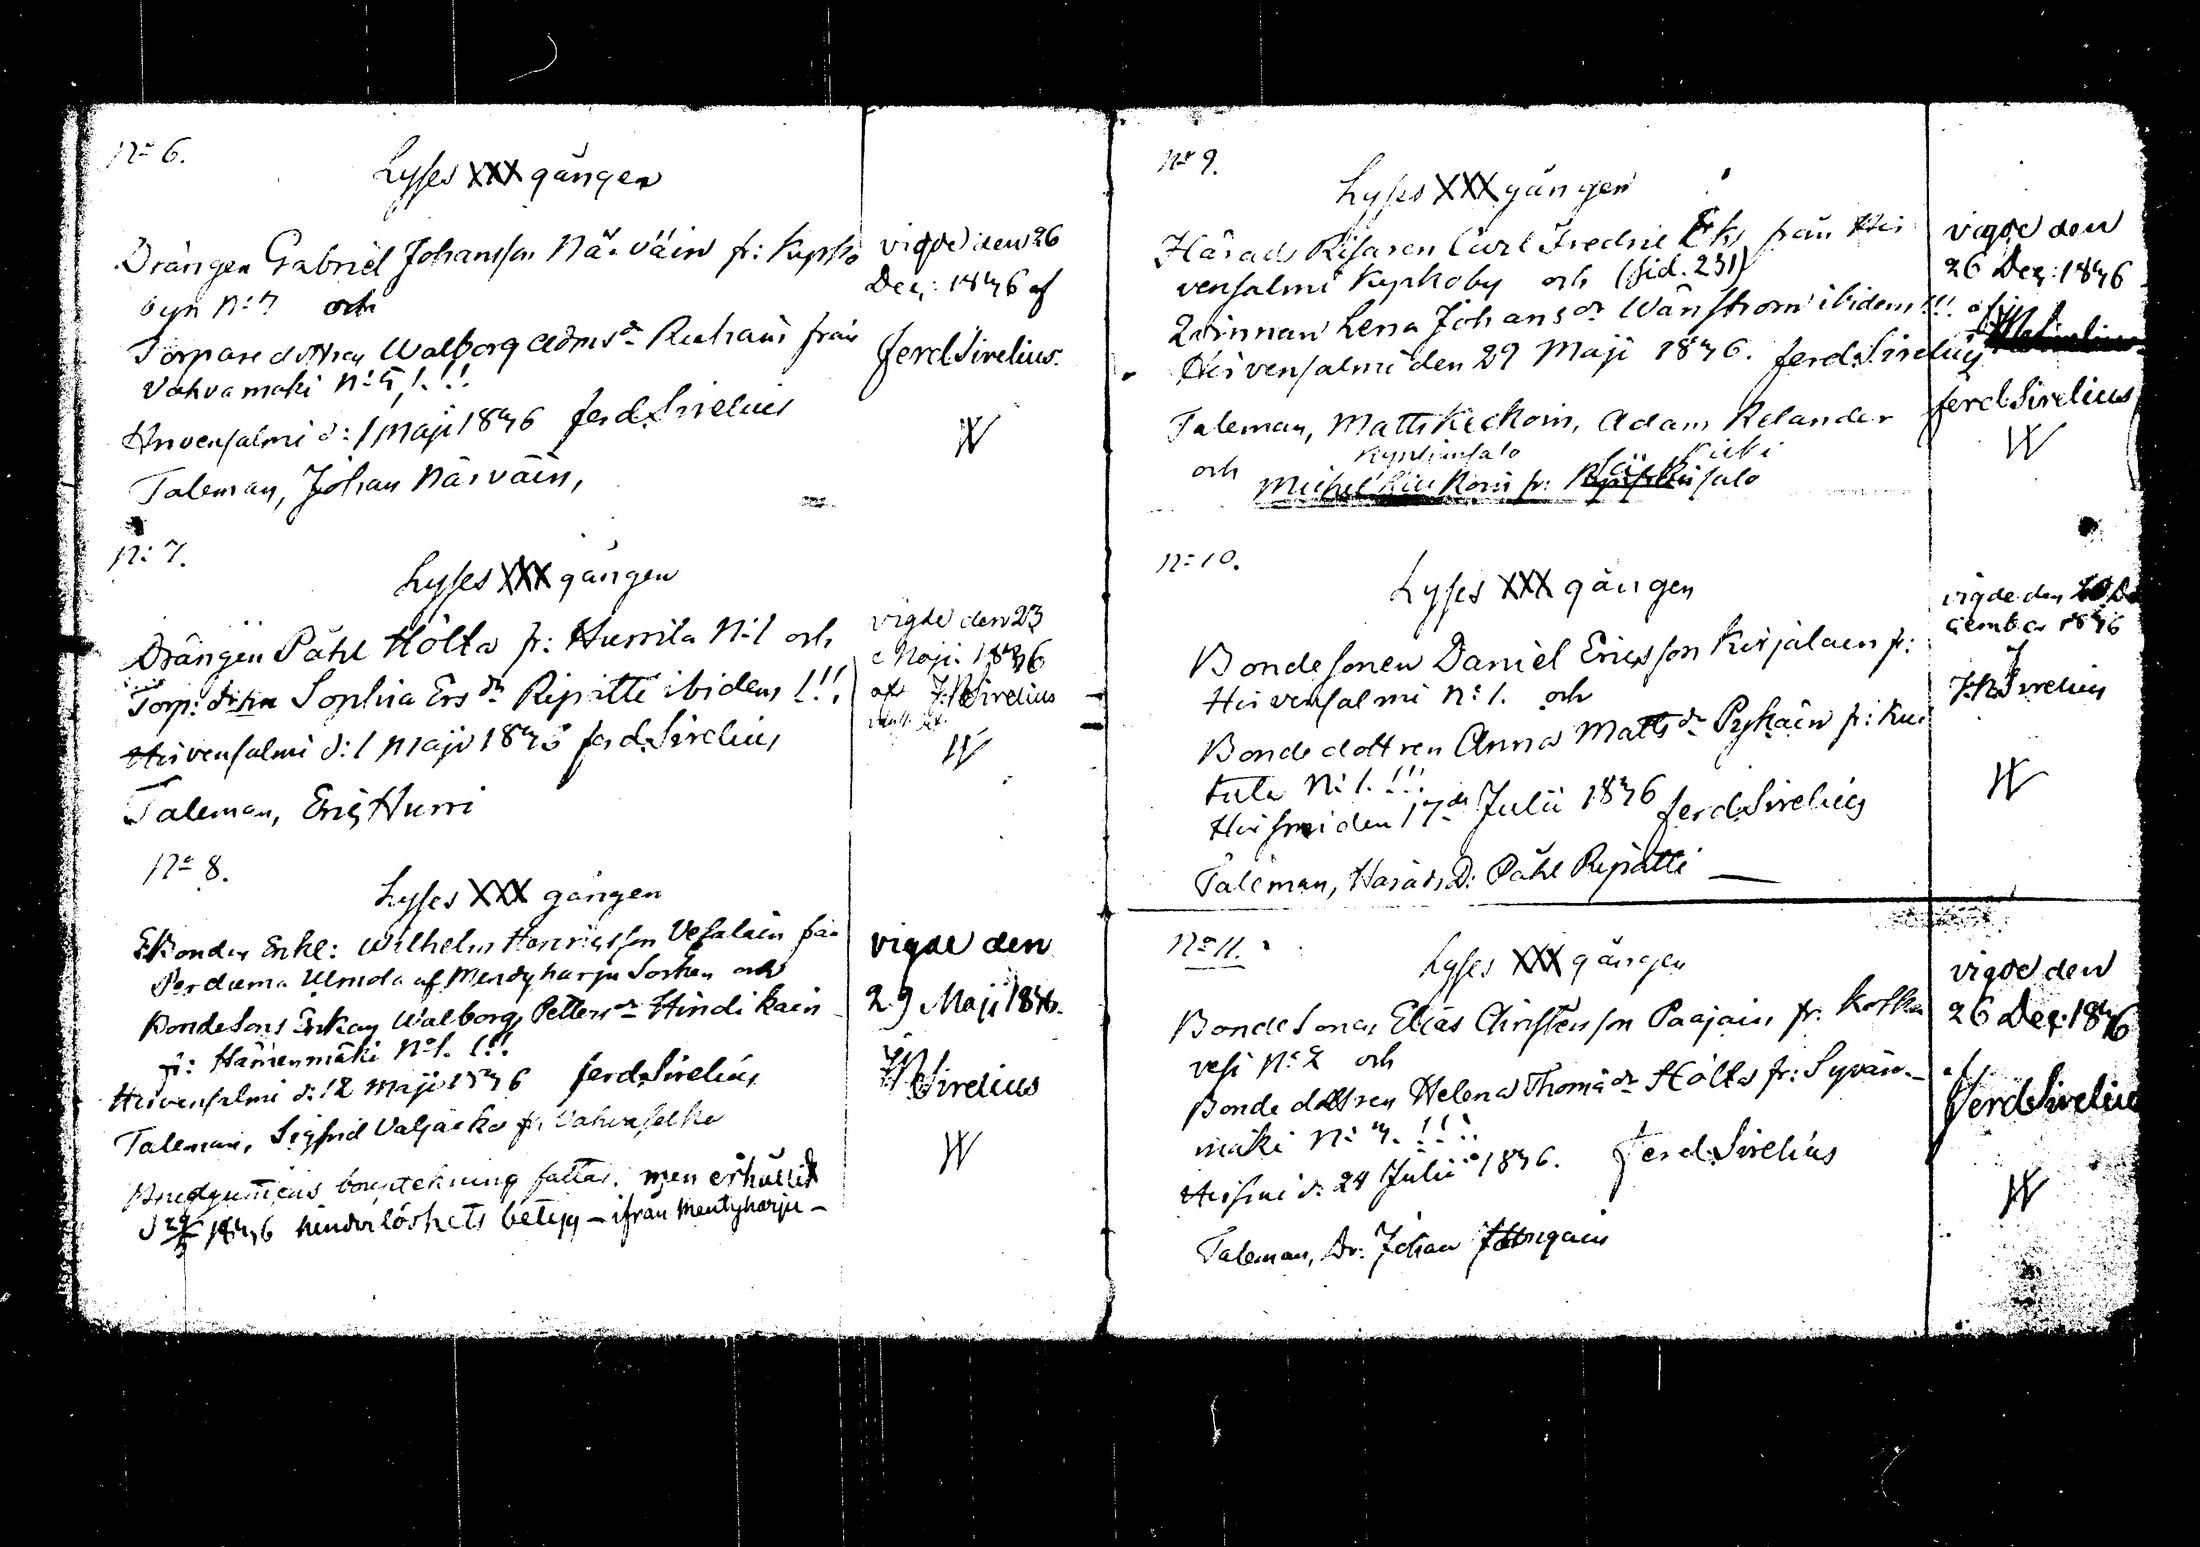 No 6.
Lyses XXX gången
Drängen Gabriel Johansson Närväin fr: Kyrko
byn No 7 och
Torpare dottren Walborg Admsdr Ruhain från
Vahvamäki No 5, !.!!
Hirvensalmi d: 1 Maji 1846 Ferd. Sirelius
Taleman, Johan Närväin,
vigde den 26
Dec: 1846 af
Ferd Sirelius.
W
No 7.
Lyses XXX gången
Drängen Påhl Höltä fr: Hurrila No 1 och
Torp: dottren Sophia Ersdr Ripatti ibidem !!!
Hirvensalmi d: 1 Maji 1846 Ferd. Sirelius
Taleman, Eric Hurri
vigde den 23
Maji 1846
af Sirelius
W
No 8.
Lyses XXX gången
Bondes Enkl: Wilhelm Henricsson Vesalain från
af Mendyharju Socken och
Bondesons Enkan Walborg Pettersdr Hindikain
fr: Hämenmäki No 1. !!!
Hirvensalmi d: 12 Maji 1846 Ferd. Sirelius
Taleman, Sigfrid Valjacka fr. Vahvaselkä
Brudgummens fattas. men erhållit
d 29/5 1846 hinderlöshets betyg – ifrån Mentyharju –
vigde den
29 Maji 1846.
Sirelius
W
No 9.
Lyses XXX gången
Härads Risaren Carl Fredric Ek från Hir
vensalmi Kyrkoby och (sid. 231)
Qvinnan Lena Johansdr Wänström ibidem !!!
Hirvensalmi den 29 Maji 1846. Ferd. Sirelius
Taleman, Matts Keckoin, Adam Relander
och
Michel fr:
vigde den
26 Dec: 1846
af
Ferd Sirelius
W
No 10.
Lyses XXX gången
Bondesonen Daniel Ericsson Karjalain fr:
Hirvensalmi No 1. och
Bondedottren Anna Mattsdr Pyhäin fr: Kui
tula No 1. !!!
Hirsmi den 17de Julii 1846 Ferd. Sirelius
Taleman, HäradsD: Påhl Ripatti —
vigde den De
cember 1846
af
Sirelius
W
No 11.
Lyses XXX gången
Bondesonen Elias Christersson Paajain fr: Koska
vesi No 2 och
Bonde dottren Helena Thomädr Höltä fr: Syvän-
mäki No 4. !!!
Hirsmi d: 24 Julii 1846. Ferd. Sirelius
Taleman, Dr: Johan
vigde den
26 Dec: 1846
af
Ferd Sirelius
W